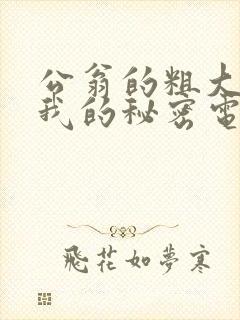 公翁的粗大
我的秘密電
飛花如夢寒